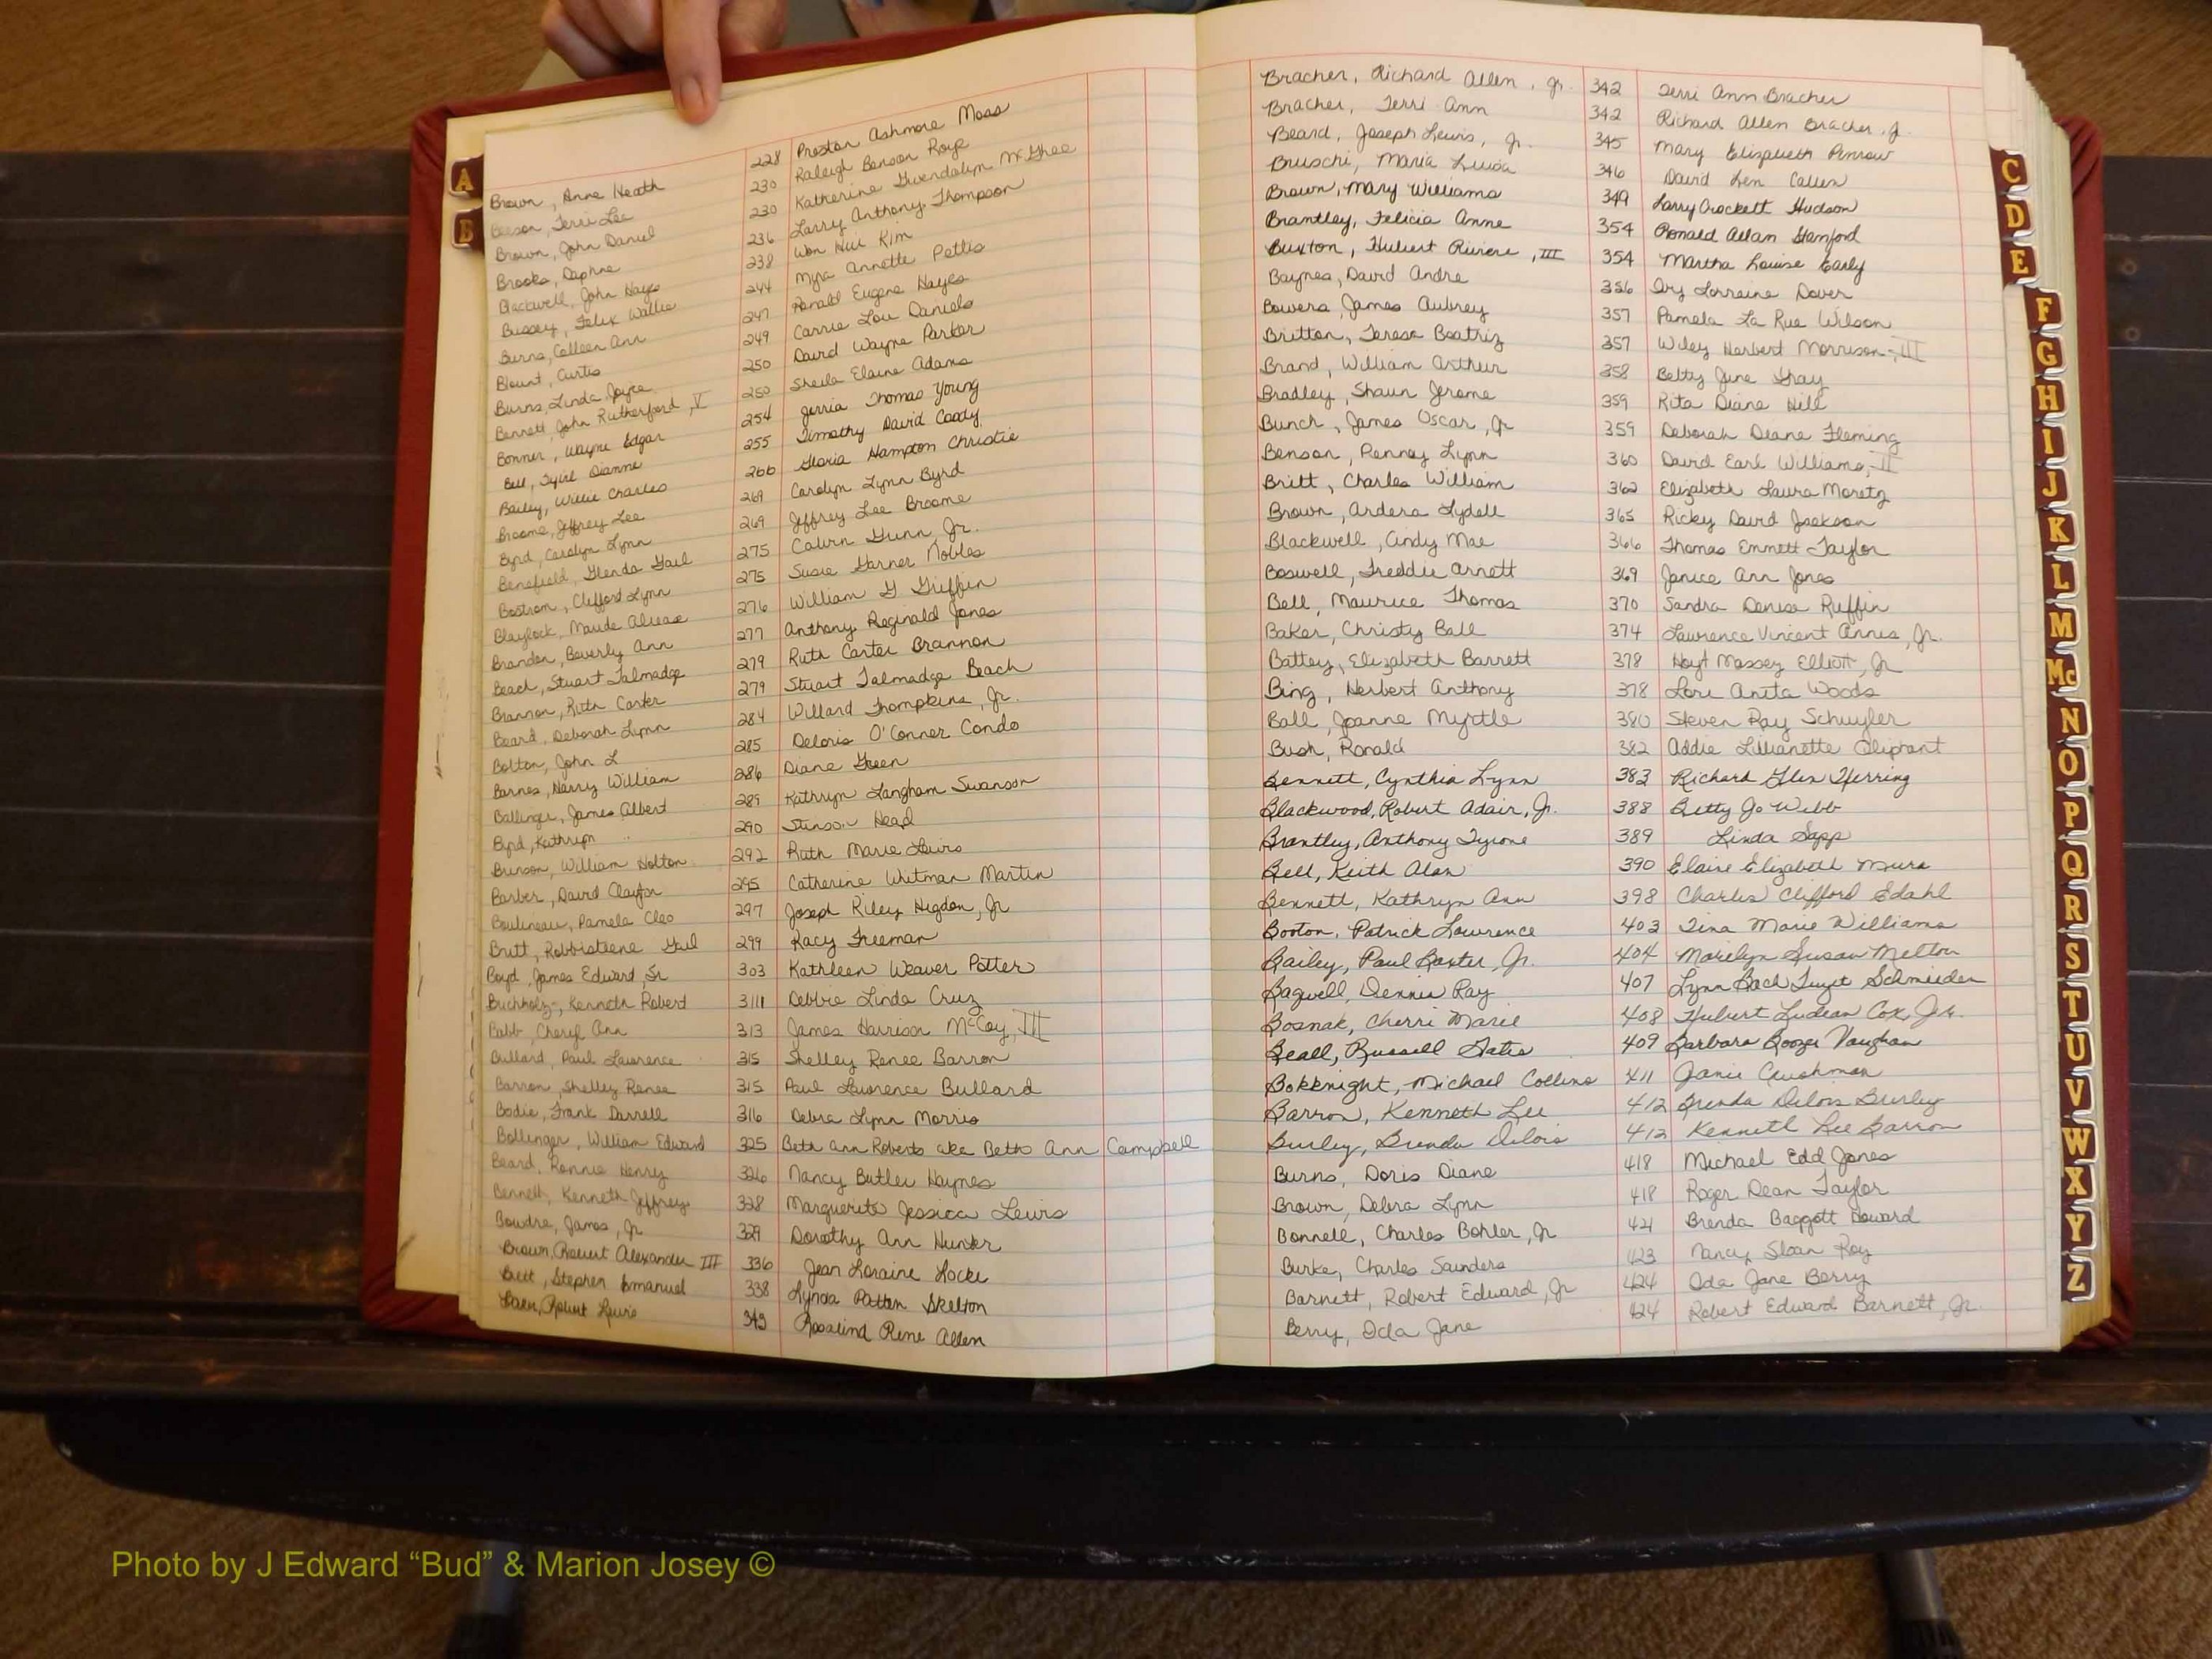 A
B
Brown, Anne Heath 228 Preston Ashmore Moss
Beeson, Terri Lee 230 Raleigh Benson Roye
Brown, John Daniel 230 Katherine Gwendolyn McGhee
Brooks, Daphne 236 Larry Anthony Thompson
Blackwell, John Hayes 238 Won Hui Kim
Bussey, Felix Wallie 244 Myra Annette Pettis
Burns, Colleen Ann 247 Ronald Eugene Hayes
Blount, Curtis 249 Carrie Lou Daniels
Burns, Linda Joyce 250 David Wayne Parker
Bennett, John Rutherford, V 250 Sheila Elaine Adams
Bonner, Wayne Edgar 254 Jerria Thomas Young
Bell, Dianne 255 Timothy David Coody
Bailey, Willie Charles 266 Gloria Hampton Christie
Broome, Jeffrey Lee 269 Carolyn Lynn Byrd
Byrd, Carolyn Lynn 269 Jeffrey Lee Broome
Benefield, Glenda Gail 275 Calvin Gunn, Jr.
Bostrom, Clifford Lynn 275 Susie Garner Nobles
Blaylock, Maude 276 William G Griffin
Brandon, Beverly Ann 277 Anthony Reginald Jones
Beach, Stuart Talmadge 279 Ruth Carter Brannon
Brannon, Ruth Carter 279 Stuart Talmadge Beach
Beard, Deborah Lynn 284 Willard Thompkins, Jr.
Bolton, John L 285 Deloris O'Conner Condo
Barnes, Harry William 286 Diane Green
Ballinger, James Albert 289 Kathryn Langham Swanson
Byrd, Kathryn 290 Stinson Head
Brinson, William Holton 292 Ruth Marie Lewis
Barber, David Clayton 295 Catherine Witman Martin
Boulineau, Pamela Cleo 297 Joseph Riley Higdon, Jr
Britt, Robbisteene Gail 299 Racy Freeman
Boyd, James Edward, Sr 303 Kathleen Weaver Potter
Buchholz, Kenneth Robert 311 Debbie Linda Cruz
Babb, Cheryl Ann 313 James Harrison McCoy, III
Bullard, Paul Lawrence 315 Shelley Renee Barron
Barron, Shelley Renee 315 Paul Lawrence Bullard
Bodie, Frank Darrell 316 Debra Lynn Morris
Bollinger, William Edward 325 Beth Ann Roberts aka Beth Ann Campbell
Beard, Ronnie Henry 326 Nancy Butler Haynes
Bennett, Kenneth Jeffrey 328 Marguerite Jessica Lewis
Boudre, James, Jr 329 Dorothy Ann Hunter
Brown, Robert Alexander III 336 Jean Loraine Locke
Britt, Stephen Emanuel 338 Lynda Patten Skelton
Robert Lewis 343 Rosalind Rene Allen
Bracher, Richard Allen, Jr. 342 Terri Ann Bracher
Bracher, Terri Ann 342 Richard Allen Bracher, Jr.
Beard, Joseph Lewis, Jr. 345 Mary Elizabeth Penrow
Bruschi, Maria Luisa 346 David Len Callen
Brown, Mary Williams 349 Larry Crockett Hudson
Brantley, Felicia Anne 354 Ronald Allan Stanford
Buxton, Hubert Riviere, III 354 Martha Louise Early
Baynes, David Andre 356 Ivy Lorraine Dover
Bowers, James Aubrey 357 Pamela La Rue Wilson
Britton, Teresa Beatriz 357 Wiley Herbert Morrison, III
Brand, William Arthur 358 Betty June Gray
Bradley, Shaun Jerome 359 Rita Diane Hill
Bunch, James Oscar, Jr 359 Deborah Diane Fleming
Benson, Penney Lynn 360 David Earl Williams, II
Britt, Charles William 362 Elizabeth Laura Moretz
Brown, Ardera Lydell 365 Ricky David Jackson
Blackwell, Cindy Mae 366 Thomas Emmett Taylor
Boswell, Freddie Arnett 369 Janice Ann Jones
Bell, Maurice Thomas 370 Sandra Denise Ruffin
Baker, Christy Ball 374 Lawrence Vincent Annis, Jr.
Battey, Elizabeth Barrett 378 Hoyt Massey Elliott, Jr
Bing, Herbert Anthony 378 Lori Anita Woods
Ball, Joanne Myrtle 380 Steven Ray Schuyler
Bush, Ronald 382 Addie Lillianette Oliphant
Bennett, Cynthia Lynn 383 Richard Glen Herring
Blackwood, Robert Adair, Jr. 388 Betty Jo Webb
Brantley, Anthony Tyrone 389 Linda Sapp
Bell, Keith Alan 390 Elaine Elizabeth Mura
Bennett, Kathryn Ann 398 Charles Clifford Edahl
Booton, Patrick Lawrence 403 Tina Marie Williams
Bailey, Paul Baxter, Jr. 404 Marilyn Susan Melton
Bagwell, Dennis Ray 407 Lynn Bach Schneider
Bosnak, Cherri Marie 408 Hubert Ludean Cox, Jr.
Beall, Russell Gates 409 Barbara Booze Vaughan
Bokknight, Michael Collins 411 Janie Cushman
Barron, Kenneth Lee 412 Brenda Delois Burley
Burley, Brenda Delois 412 Kenneth Lee Barron
Burns, Doris Diane 418 Michael Edd Jones
Brown, Debra Lynn 418 Roger Dean Taylor
Bonnell, Charles Bohler, Jr 421 Brenda Baggott Howard
Burke, Charles Saunders 423 Nancy Sloan Roy
Barnett, Robert Edward, Jr 424 Oda Jane Berry
Berry, Oda Jane 424 Robert Edward Barnett, Jr.
C
D
E
F
G
H
I
J
K
L
M
Mc
N
O
P
Q
R
S
T
U
V
W
X
Y
Z
Photo by J Edward “Bud” & Marion Josey ©